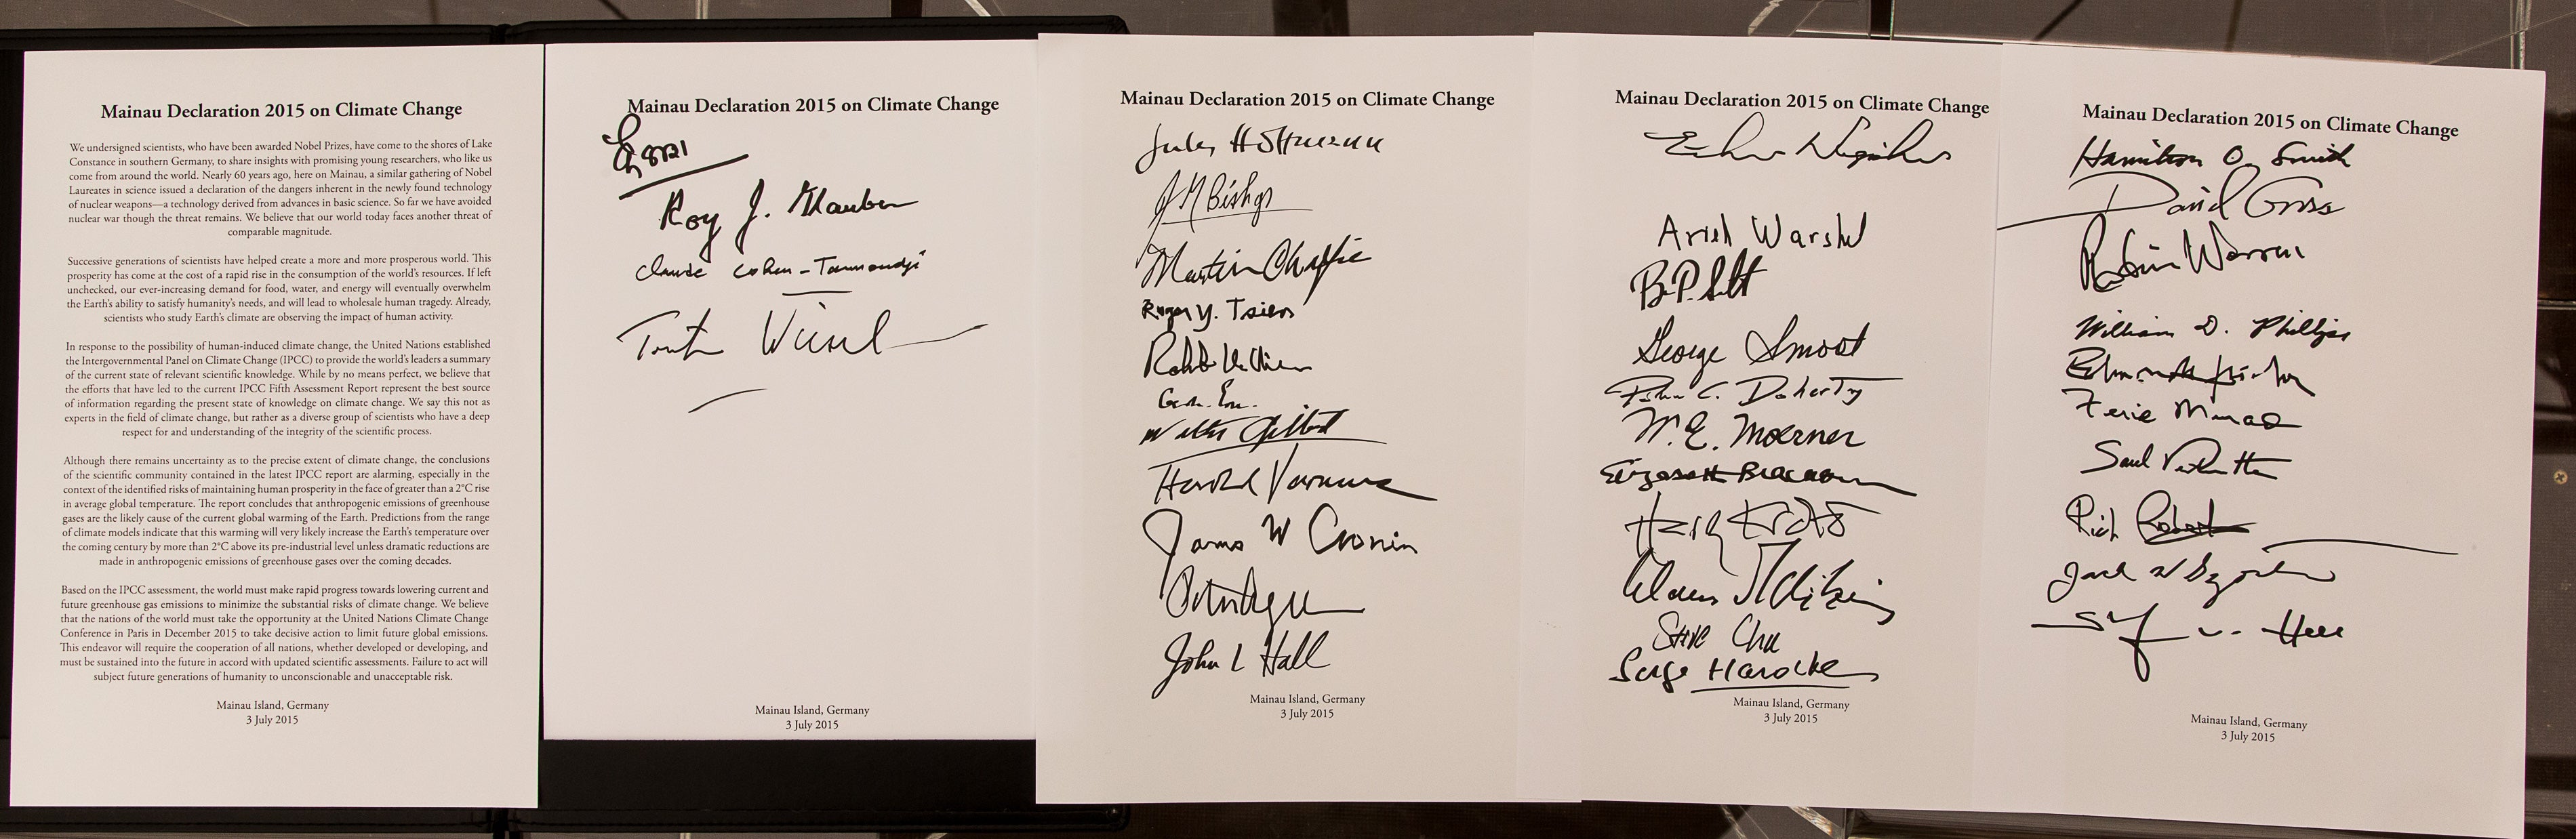 Mainau Declaration 2015 on Climate Change
We undersigned scientists, who have been awarded Nobel Prizes, have come to the shores of Lake
Constance in southern Germany, to share insights with promising young researchers, who like us
come from around the world. Nearly 60 years ago, here on Mainau, a similar gathering of Nobel
Laureates in science issued a declaration of the dangers inherent in the newly found technology
of nuclear weapons—a technology derived from advances in basic science. So far we have avoided
nuclear war though the threat remains. We believe that our world today faces another threat of
comparable magnitude.
Successive generations of scientists have helped create a more and more prosperous world. This
prosperity has come at the cost of a rapid rise in the consumption of the world's resources. If left
unchecked, our ever-increasing demand for food, water, and energy will eventually overwhelm
the Earth's ability to satisfy humanity's needs, and will lead to wholesale human tragedy. Already,
scientists who study Earth's climate are observing the impact of human activity.
In response to the possibility of human-induced climate change, the United Nations established
the Intergovernmental Panel on Climate Change (IPCC) to provide the world's leaders a summary
of the current state of relevant scientific knowledge. While by no means perfect, we believe that
the efforts that have led to the current IPCC Fifth Assessment Report represent the best source
of information regarding the present state of knowledge on climate change. We say this not as
experts in the field of climate change, but rather as a diverse group of scientists who have a deep
respect for and understanding of the integrity of the scientific process.
Although there remains uncertainty as to the precise extent of climate change, the conclusions
of the scientific community contained in the latest IPCC report are alarming, especially in the
context of the identified risks of maintaining human prosperity in the face of greater than a 2°C rise
in average global temperature. The report concludes that anthropogenic emissions of greenhouse
gases are the likely cause of the current global warming of the Earth. Predictions from the range
of climate models indicate that this warming will very likely increase the Earth's temperature over
the coming century by more than 2°C above its pre-industrial level unless dramatic reductions are
made in anthropogenic emissions of greenhouse gases over the coming decades.
Based on the IPCC assessment, the world must make rapid progress towards lowering current and
future greenhouse gas emissions to minimize the substantial risks of climate change. We believe
that the nations of the world must take the opportunity at the United Nations Climate Change
Conference in Paris in December 2015 to take decisive action to limit future global emissions.
This endeavor will require the cooperation of all nations, whether developed or developing, and
must be sustained into the future in accord with updated scientific assessments. Failure to act will
subject future generations of humanity to unconscionable and unacceptable risk.
Mainau Island, Germany
3 July 2015
Mainau Declaration 2015 on Climate Change
Roy J. Glauber
Claude Cohen-Tannoudji
Mainau Island, Germany
3 July 2015
Mainau Declaration 2015 on Climate Change
Jules Hoffmann
JM Bishop
Martin Chalfie
Roger Y. Tsien
Walter Gilbert
Harold Varmus
James W Cronin
John L Hall
Mainau Island, Germany
3 July 2015
Mainau Declaration 2015 on Climate Change
Arieh Warshel
George Smoot
Peter C. Doherty
W.E. Moerner
Elizabeth Blackburn
Steve Chu
Serge Haroche
Mainau Island, Germany
3 July 2015
Mainau Declaration 2015 on Climate Change
Hamilton O. Smith
David Gross
Robin Warren
William D. Phillips
Ferid Murad
Saul Perlmutter
Rich Roberts
Mainau Island, Germany
3 July 2015